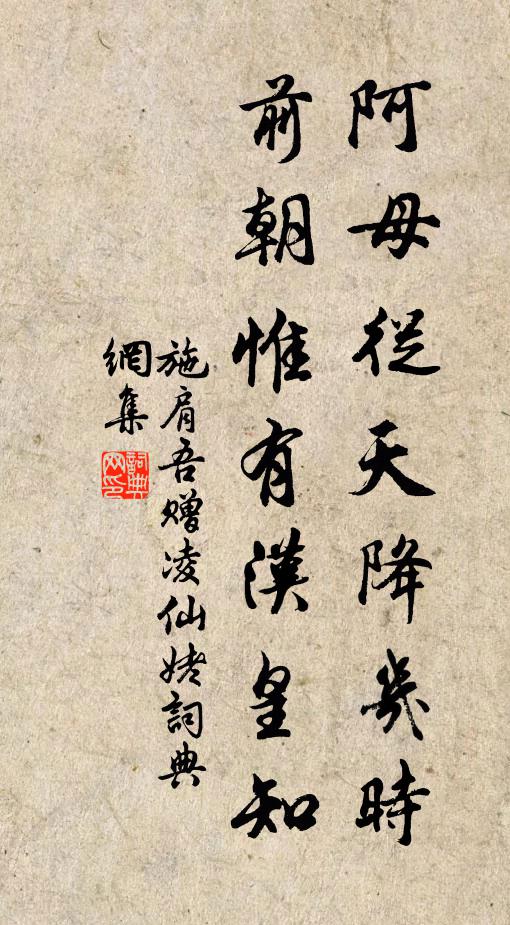 阿母從天降幾時
前朝惟有漢皇知
施肩吾贈凌仙姥詞典
網集
詞典
网印